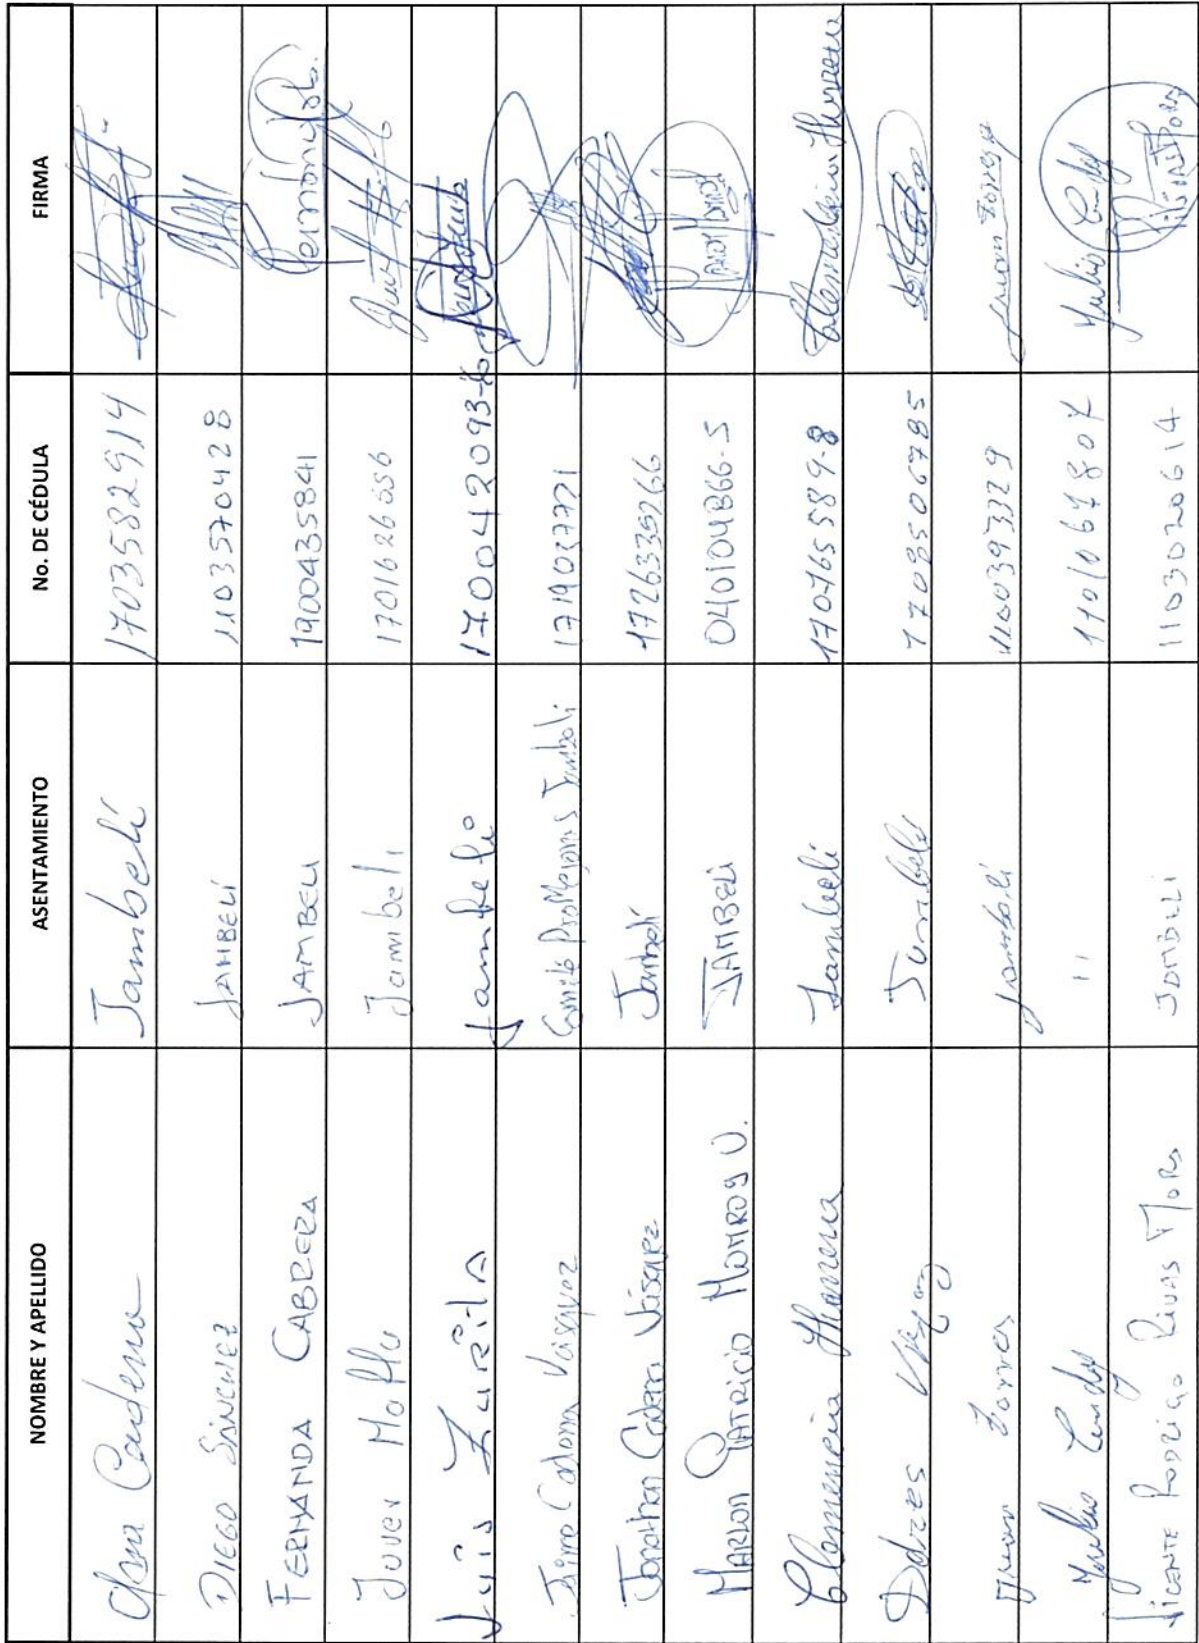 NOMBRE Y APELLIDO ASENTAMIENTO No. DE CÉDULA FIRMA
Cadena Jambelí 1703582914
DIEGO SÁNCHEZ JAMBELÍ 1103570428
FERNANDA CABRERA JAMBELI 1900435841
Jambeli 1701626556
Luis Zurita Jambelí 170042093-6
Cadena Vásquez Comité ProMejoras Jambeli 1719037771
Jonathan Cadena Vásquez Jambelí 1726335266
MARLON PATRICIO MONROY V. JAMBELÍ 040104866-5
Clemencia Herrera Jambelí 170765589-8 Clemencia Herrera
Dolores Jambelí 1709506785
Torres Jambelí 1100397329
Julio " 1101067807 Julio
VICENTE RODRIGO RIVAS MORA JAMBELI 1103020614